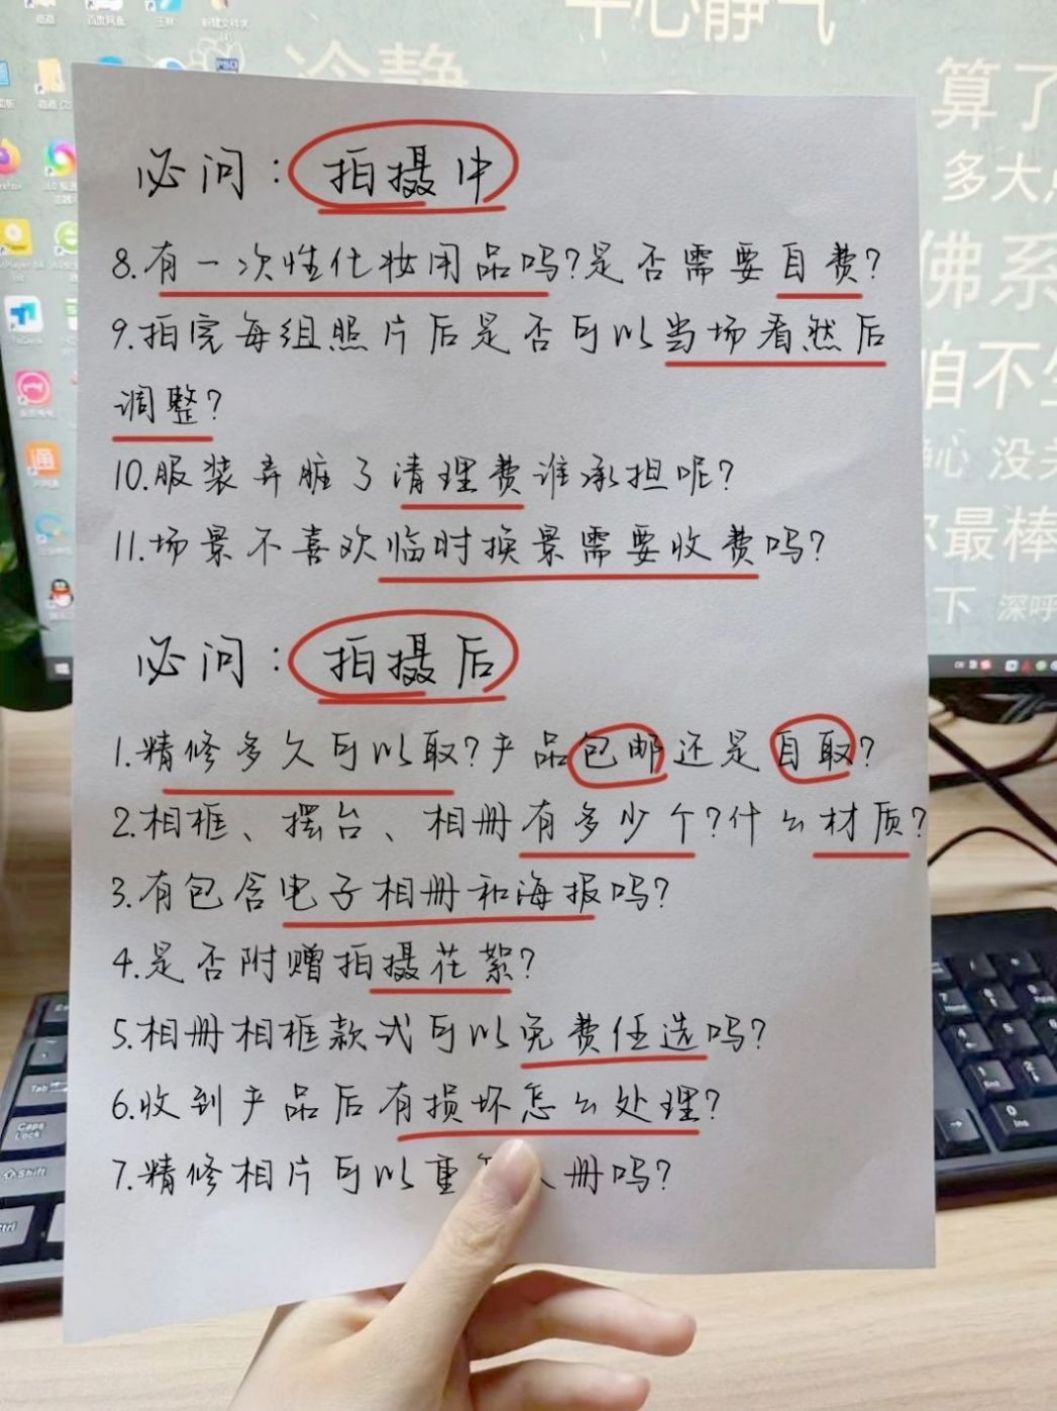 平心静气
冷静
算了
多大
佛系
咱不生
静心 没
你最棒
下 深呼
PSD
必问：拍摄中
8.有一次性化妆用品吗?是否需要自费?
9.拍完每组照片后是否可以当场看然后
调整?
10.服装弄脏了清理费谁承担呢?
11.场景不喜欢临时换景需要收费吗?
必问：拍摄后
1.精修多久可以取?产品包邮还是自取?
2.相框、摆台、相册有多少个?什么材质?
3.有包含电子相册和海报吗?
4.是否附赠拍摄花絮?
5.相册相框款式可以免费任选吗?
6.收到产品后有损坏怎么处理?
7.精修相片可以重 册吗?
Tab
Caps
Lock
Shift
Ctrl